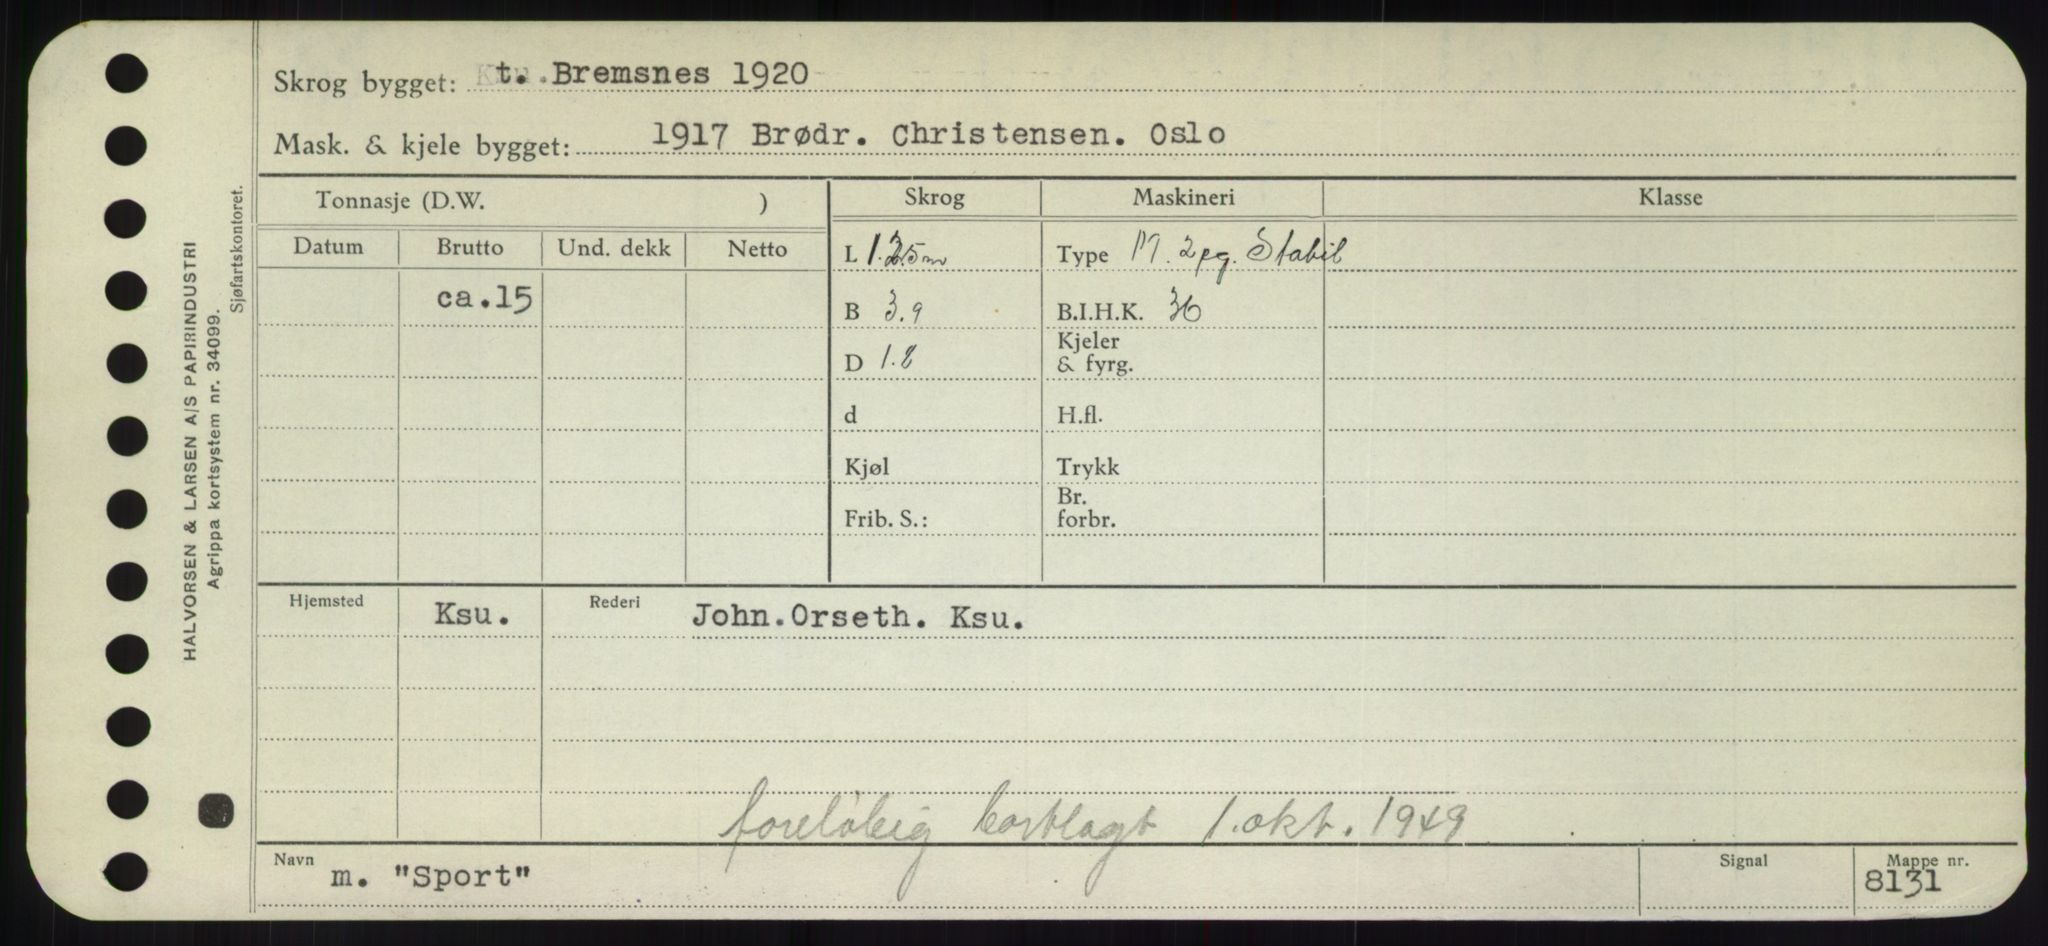 Skrog bygget: t. Bremsnes 1920
Mask. & kjele bygget: 1917 Brødr. Christensen. Oslo
Tonnasje (D.W. )
Skrog Maskineri Klasse
Datum Brutto Und. dekk Netto
L Type M. 2 pg. Stabil
ca.15
B 3.9 B.I.H.K. 36
D 1.8 Kjeler & fyrg.
d H.fl.
Kjøl Trykk
Frib. S.: Br. forbr.
Hjemsted Ksu. Rederi John.Orseth. Ksu.
foreløbig bortlagt 1. okt. 1949
Navn m. "Sport" Signal Mappe nr. 8131
HALVORSEN & LARSEN A/S PAPIRINDUSTRI
Agrippa kortsystem nr. 34099.
Sjøfartskontoret.